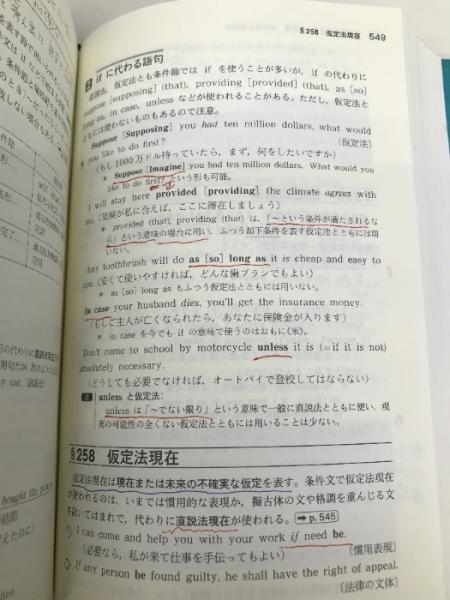 §258 仮定法現在 549
2 if に代わる語句
直説法,仮定法とも条件節では if を使うことが多いが,if の代わりに
suppose [supposing] (that), providing [provided] (that), as [so]
long as, in case, unless などが使われることがある。ただし,仮定法と
ともには使わないものもあるので注意。
Suppose [Supposing] you had ten million dollars, what would
you like to do first? 〔仮定法〕
(もし1000万ドル持っていたら,まず,何をしたいですか)
* Suppose [Imagine] you had ten million dollars. What would you
like to do first? という形も可能。
I will stay here provided [providing] the climate agrees with
me. (気候が私に合えば,ここに滞在しましょう)
* provided (that), providing (that) は,「~という条件が満たされるな
ら」という意味の場合に用い,ふつう却下条件を表す仮定法とともには用
いない。
Any toothbrush will do as [so] long as it is cheap and easy to
use. (安くて使いやすければ,どんな歯ブラシでもよい)
* as [so] long as もふつう仮定法とともには用いない。
In case your husband dies, you'll get the insurance money.
(もしご主人が亡くなられたら,あなたに保険金が入ります)
* in case を今でも if の意味で使うのはおもに《米》。
Don't come to school by motorcycle unless it is (=if it is not)
absolutely necessary.
(どうしても必要でなければ,オートバイで登校してはならない)
unless と仮定法:
unless は「~でない限り」という意味で一般に直説法とともに使い,現
実の可能性の全くない仮定法とともには用いることは少ない。
§258 仮定法現在
仮定法現在は現在または未来の不確実な仮定を表す。条件文で仮定法現在
が使われるのは,いまでは慣用的な表現か,擬古体の文や格調を重んじる文
を除いてはまれで,代わりに直説法現在が使われる。(➡p.545)
I can come and help you with your work if need be.
(必要なら,私が来て仕事を手伝ってもよい) 〔慣用表現〕
If any person be found guilty, he shall have the right of appeal.
〔法律の文体〕